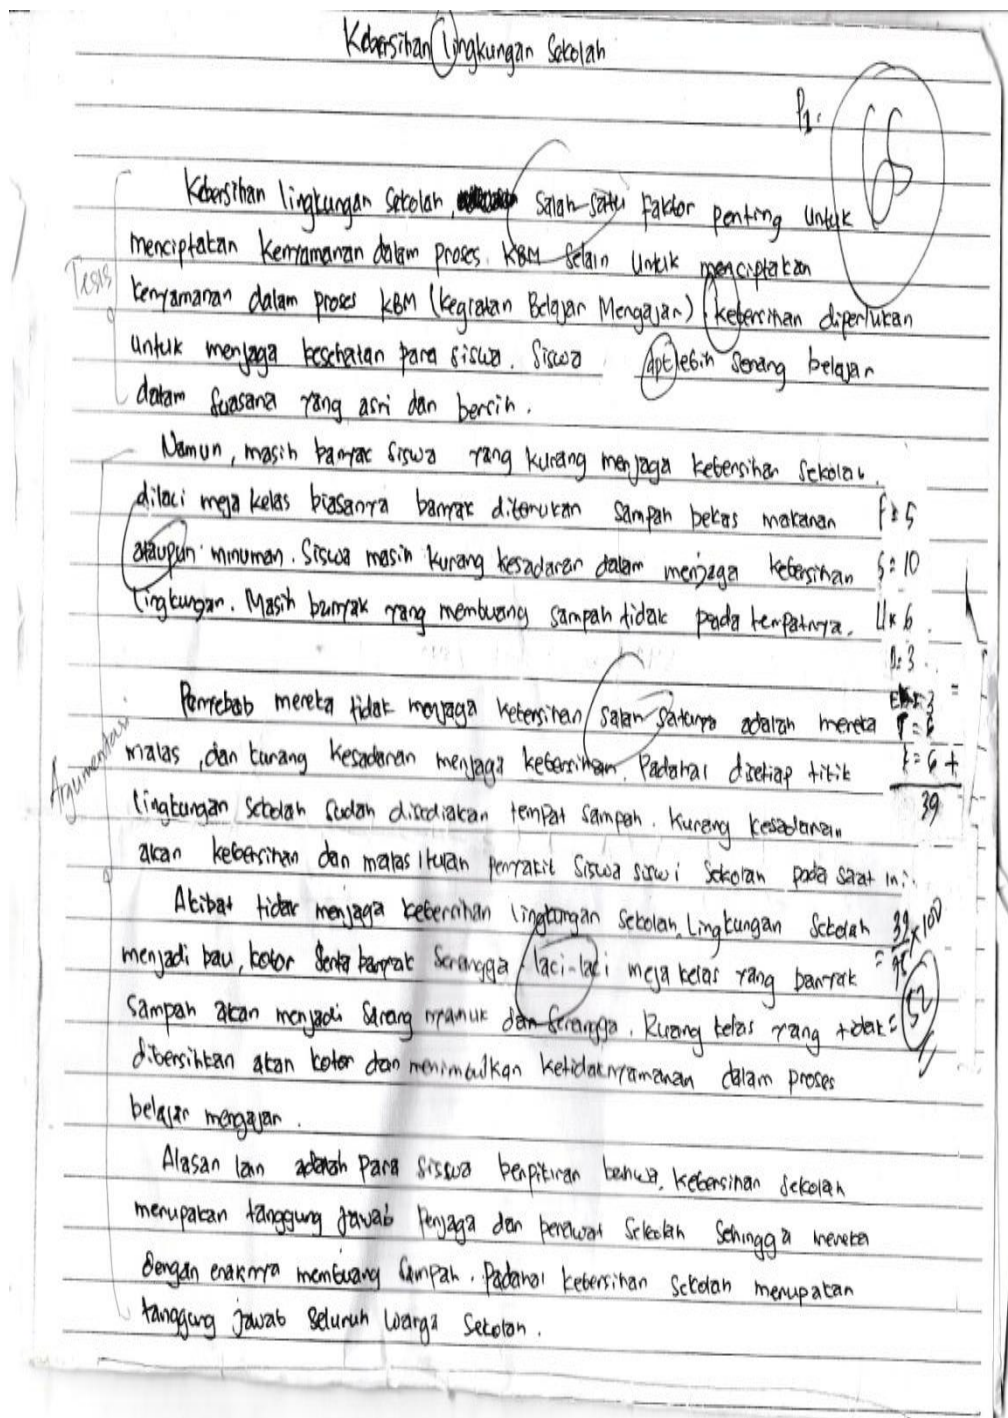 Kebersihan lingkungan Sekolah
P1.
Kebersihan lingkungan Sekolah, Salah satu faktor penting untuk
menciptakan Kenyamanan dalam proses. KBM Selain Untuk menciptakan
Tesis
kenyamanan dalam proses KBM (Kegiatan Belajar Mengajar) kebersihan diperlukan
untuk menjaga kesehatan para siswa. Siswa dpt lebih senang belajar
dalam suasana yang asri dan bersih.
Namun, masih banyak siswa yang kurang menjaga kebersihan sekolah.
dilaci meja kelas biasanya banyak ditemukan sampah bekas makanan
ataupun minuman. Siswa masih kurang kesadaran dalam menjaga kebersihan
S = 10
lingkungan. Masih banyak yang membuang sampah tidak pada tempatnya.
Penyebab mereka tidak menjaga kebersihan salah satunya adalah mereka
Argumentasi
malas, dan kurang kesadaran menjaga kebersihan. Padahal disetiap titik
lingkungan sekolah sudah disediakan tempat sampah. Kurang kesadaran
39
akan kebersihan dan malas itulah penyakit siswa siswi sekolah pada saat ini.
Akibat tidak menjaga kebersihan lingkungan sekolah. Lingkungan Sekolah
menjadi bau, kotor serta banyak serangga laci-laci meja kelas yang banyak
sampah akan menjadi sarang nyamuk dan serangga. Ruang kelas yang tidak
= 52
dibersihkan akan kotor dan menimbulkan ketidaknyamanan dalam proses
belajar mengajar.
Alasan lain adalah para siswa berpikiran bahwa, kebersihan sekolah
merupakan tanggung jawab Penjaga dan perawat sekolah sehingga mereka
dengan enaknya membuang sampah. Padahal kebersihan sekolah merupakan
tanggung jawab seluruh warga sekolah.